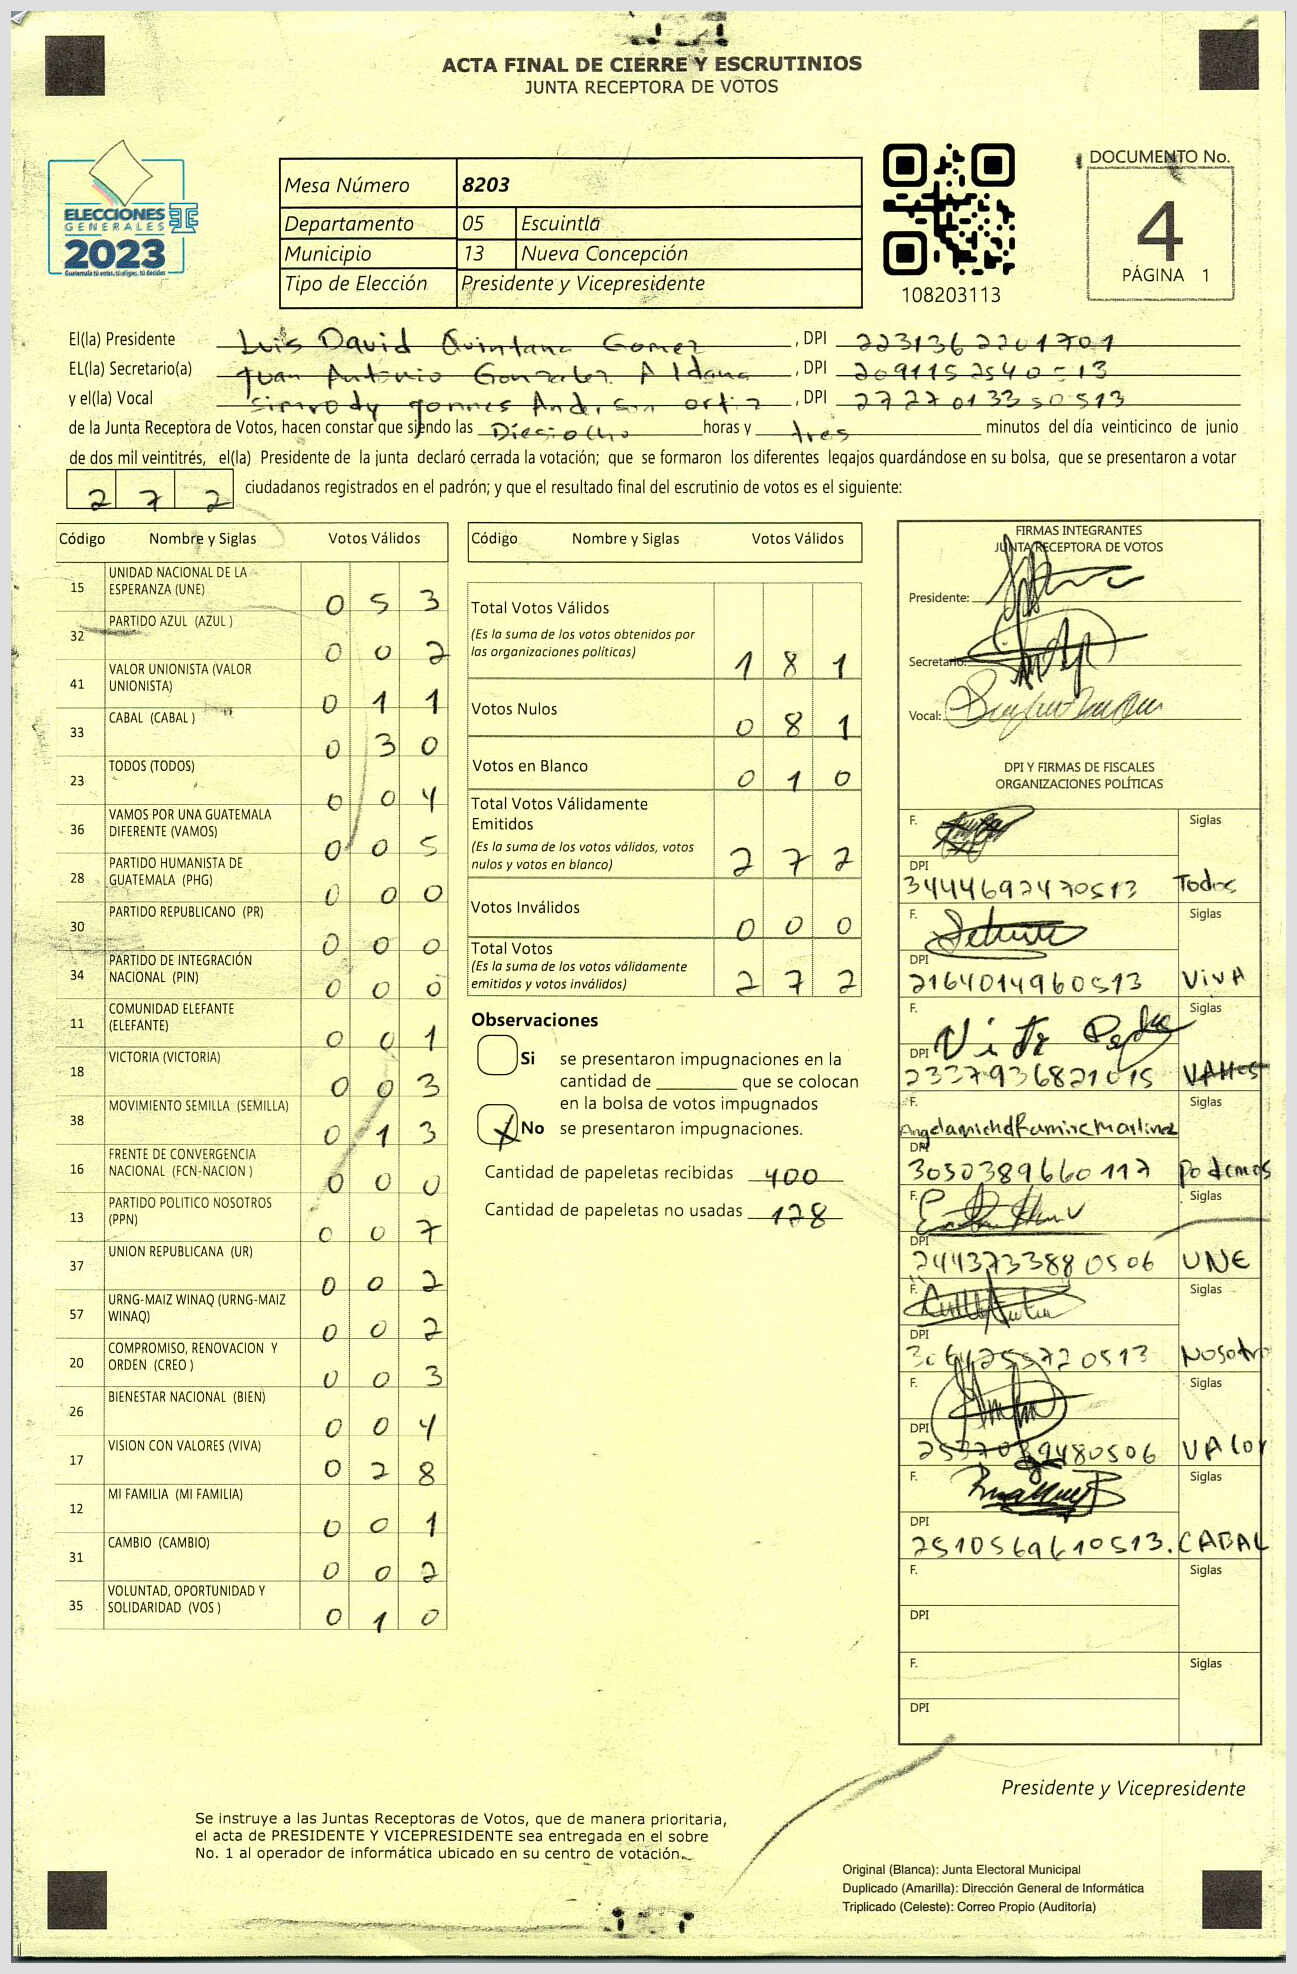 ACTA FINAL DE CIERRE Y ESCRUTINIOS
JUNTA RECEPTORA DE VOTOS
ELECCIONES
GENERALES
2023
Guatemala tú votas, tú eliges, tú decides
Mesa Número 8203
Departamento 05 Escuintla
Municipio 13 Nueva Concepción
Tipo de Elección Presidente y Vicepresidente
108203113
DOCUMENTO No.
4
PÁGINA 1
El(la) Presidente Luis David Quintana Gomez, DPI 2231362201701
EL(la) Secretario(a) Juan Antonio Gonzalez Aldana, DPI 2091152540513
y el(la) Vocal Anderson Ortiz, DPI 2727013350513
de la Junta Receptora de Votos, hacen constar que siendo las Diesiocho horas y tres minutos del día veinticinco de junio
de dos mil veintitrés, el(la) Presidente de la junta declaró cerrada la votación; que se formaron los diferentes legajos guardándose en su bolsa, que se presentaron a votar
2 7 2 ciudadanos registrados en el padrón; y que el resultado final del escrutinio de votos es el siguiente:
Código Nombre y Siglas Votos Válidos
15 UNIDAD NACIONAL DE LA ESPERANZA (UNE) 0 5 3
32 PARTIDO AZUL (AZUL ) 0 0 2
41 VALOR UNIONISTA (VALOR UNIONISTA) 0 1 1
33 CABAL (CABAL ) 0 3 0
23 TODOS (TODOS) 0 0 4
36 VAMOS POR UNA GUATEMALA DIFERENTE (VAMOS) 0 0 5
28 PARTIDO HUMANISTA DE GUATEMALA (PHG) 0 0 0
30 PARTIDO REPUBLICANO (PR) 0 0 0
34 PARTIDO DE INTEGRACIÓN NACIONAL (PIN) 0 0 0
11 COMUNIDAD ELEFANTE (ELEFANTE) 0 0 1
18 VICTORIA (VICTORIA) 0 0 3
38 MOVIMIENTO SEMILLA (SEMILLA) 0 1 3
16 FRENTE DE CONVERGENCIA NACIONAL (FCN-NACION ) 0 0 0
13 PARTIDO POLITICO NOSOTROS (PPN) 0 0 7
37 UNION REPUBLICANA (UR) 0 0 2
57 URNG-MAIZ WINAQ (URNG-MAIZ WINAQ) 0 0 2
20 COMPROMISO, RENOVACION Y ORDEN (CREO ) 0 0 3
26 BIENESTAR NACIONAL (BIEN) 0 0 4
17 VISION CON VALORES (VIVA) 0 2 8
12 MI FAMILIA (MI FAMILIA) 0 0 1
31 CAMBIO (CAMBIO) 0 0 2
35 VOLUNTAD, OPORTUNIDAD Y SOLIDARIDAD (VOS ) 0 1 0
Código Nombre y Siglas Votos Válidos
Total Votos Válidos 1 8 1
(Es la suma de los votos obtenidos por
las organizaciones políticas)
Votos Nulos 0 8 1
Votos en Blanco 0 1 0
Total Votos Válidamente
Emitidos 2 7 2
(Es la suma de los votos válidos, votos
nulos y votos en blanco)
Votos Inválidos 0 0 0
Total Votos 2 7 2
(Es la suma de los votos válidamente
emitidos y votos inválidos)
Observaciones
Si se presentaron impugnaciones en la
cantidad de ________ que se colocan
en la bolsa de votos impugnados
X No se presentaron impugnaciones.
Cantidad de papeletas recibidas 400
Cantidad de papeletas no usadas 128
FIRMAS INTEGRANTES
JUNTA RECEPTORA DE VOTOS
Presidente:
Secretario:
Vocal:
DPI Y FIRMAS DE FISCALES
ORGANIZACIONES POLÍTICAS
F. Siglas
DPI
3444692470513 Todos
F. Siglas
DPI
2164014960513 VIVA
F. Siglas
DPI
2337936821015 VAMOS
F. Siglas
DPI
3050389660117 Podemos
F. Siglas
DPI
2443733880506 UNE
F. Siglas
DPI
Nosotro
F. Siglas
DPI
VAlor
F. Siglas
DPI
2510569610513. CABAL
F. Siglas
DPI
F. Siglas
DPI
Presidente y Vicepresidente
Se instruye a las Juntas Receptoras de Votos, que de manera prioritaria,
el acta de PRESIDENTE Y VICEPRESIDENTE sea entregada en el sobre
No. 1 al operador de informática ubicado en su centro de votación.
Original (Blanca): Junta Electoral Municipal
Duplicado (Amarilla): Dirección General de Informática
Triplicado (Celeste): Correo Propio (Auditoría)